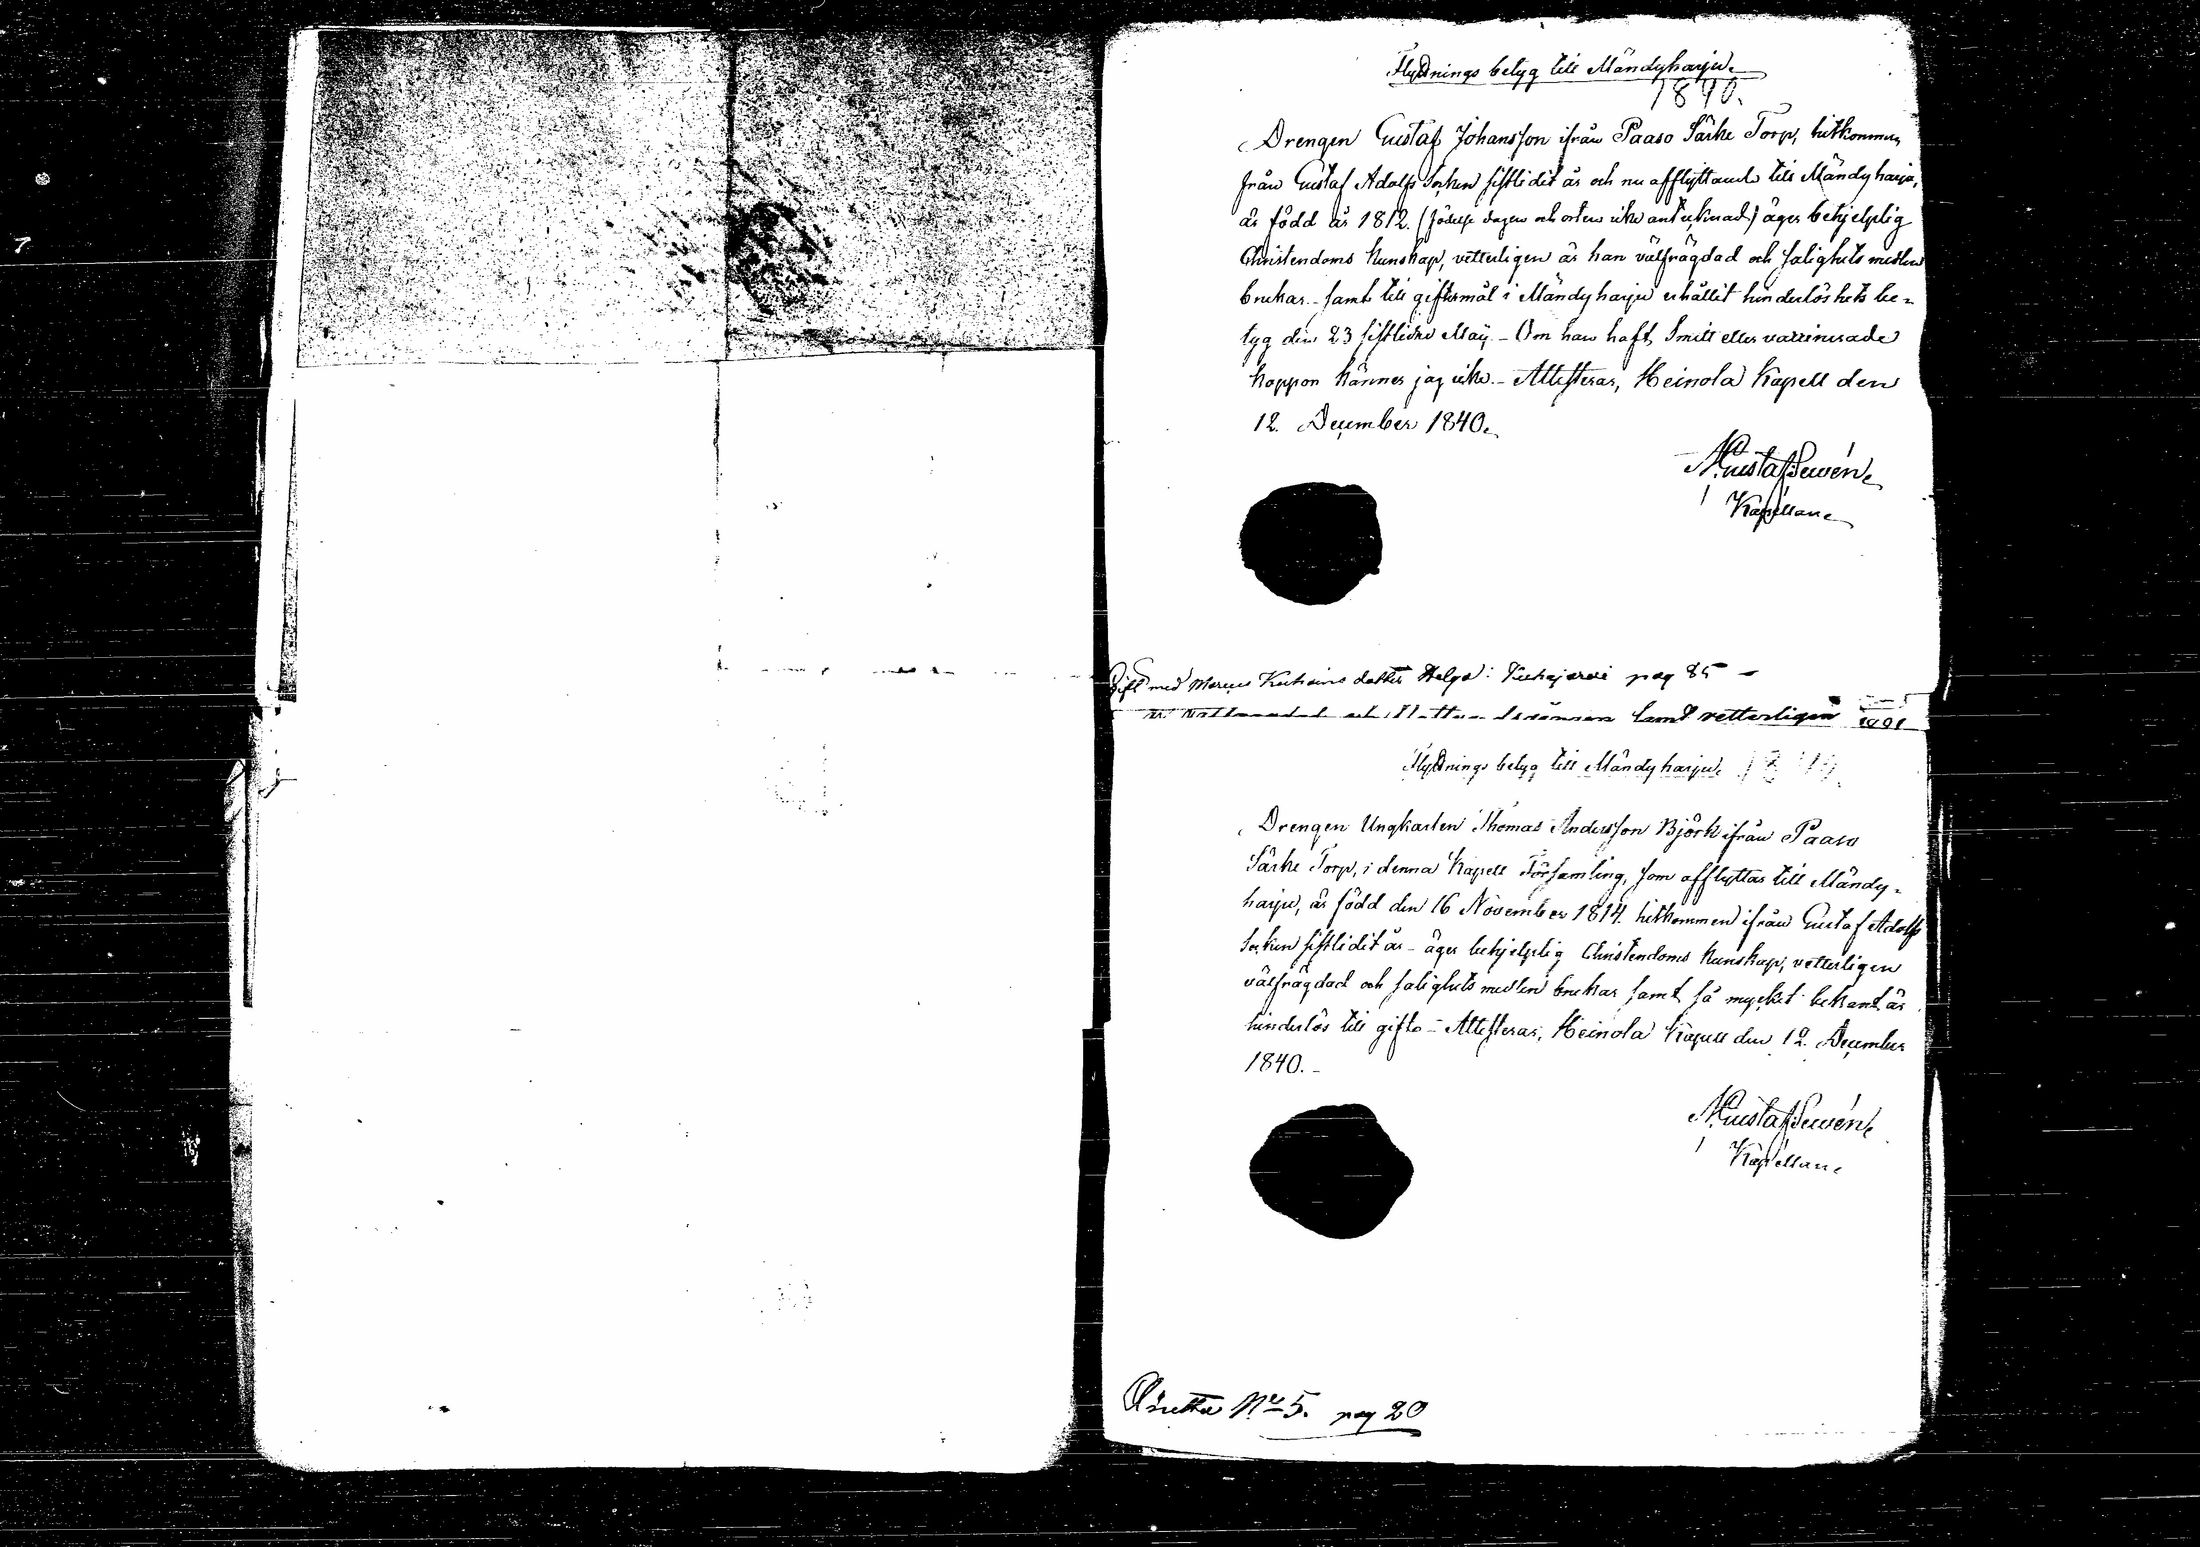 Flyttnings betyg till Mändyharju.
1840.
Drengen Gustaf Johansson ifrån Paaso Särke Torp, hitkommen
från Gustaf Adolfs Socken sistlidit år och nu afflyttande till Mändyharju,
är född år 1812. (födelse dagen och orten icke antecknad) äger behjelplig
Christendoms kunskap, vetterligen är han välfrägdad och salighets medlen
brukar. samt till giftermål i Mändyharju erhållit hinderlöshets be=
tyg den 23 sistledne Maij. Om han haft, smitt eller vaccinerade
koppor känner jag icke. Attesteras, Heinola Kapell den
12. December 1840.
N Gustaf Sevén
Kapellan
Gift med Marcus Kuhains dotter Helga i Kuhajarvi pag 85
samt vetterligen
Flyttnings betyg till Mändyharju. 1840.
Drengen Ungkarlen Thomas Andersson Björk ifrån Paaso
Särke Torp, i denna Kapell Församling, som afflyttar till Mändy=
harju, är född den 16 November 1814. hitkommen ifrån Gustaf Adolfs
Socken sistlidit år - äger behjelplig Christendoms kunskap, vetterligen
välfrägdad och salighets medlen brukar samt så mycket bekant är
hinderlös till gifte - Attesteras, Heinola Kapell den 12. December
1840.
N Gustaf Sevén
Kapellan
No 5. pag 20